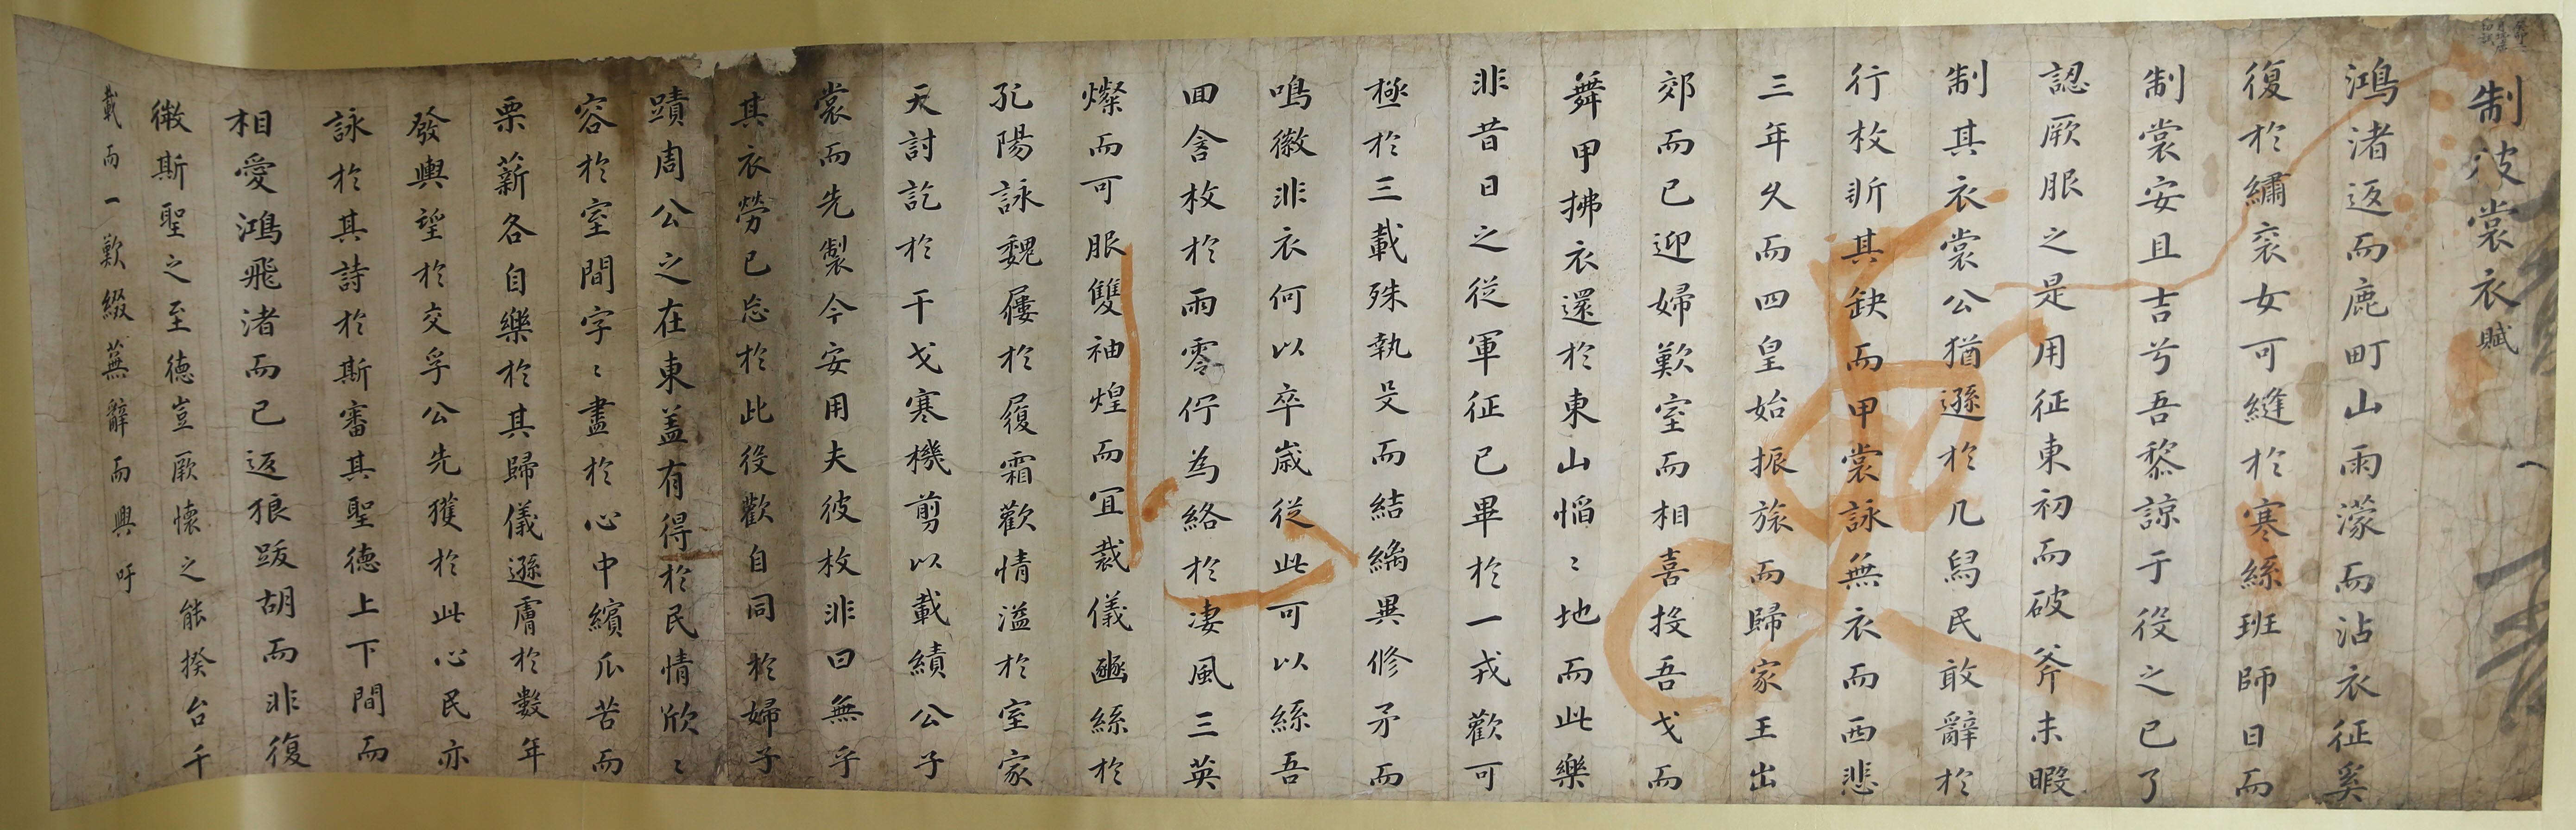 制彼裳衣賦
鴻渚返而鹿町山雨濛而沾衣征奚
復於繡袞女可縫於寒絲班師日而
制裳安且吉兮吾黎諒于役之已了
認厥服之是用征東初而破斧未暇
制其衣裳公猶遜於几舄民敢辭於
行枚斨其缺而甲裳詠無衣而西悲
三年久而四皇始振旅而歸家王出
郊而已迎婦歎室而相喜投吾戈而
舞甲拂衣還於東山慆〻地而此樂
非昔日之從軍征已畢於一戎歡可
極於三載殊執殳而結縭異修矛而
鳴徽非衣何以卒歲從此可以絲吾
回舍枚於雨零佇為絡於凄風三英
燦而可服雙袖煌而宜裁儀豳絲於
孔陽詠魏屨於履霜歡情溢於室家
天討訖於干戈寒機剪以載績公子
裳而先製今安用夫彼枚非曰無乎
其衣勞已忘於此役歡自同於婦子
蹟周公之在東盖有得於民情欣〻
容於室間字〻盡於心中繽瓜苦而
栗薪各自樂於其歸儀遜膚於數年
發輿望於交孚公先獲於此心民亦
詠於其詩於斯審其聖德上下間而
相愛鴻飛渚而已返狼跋胡而非復
微斯聖之至德豈厥懷之能揆台千
載而一歎綴蕪辭而興吁